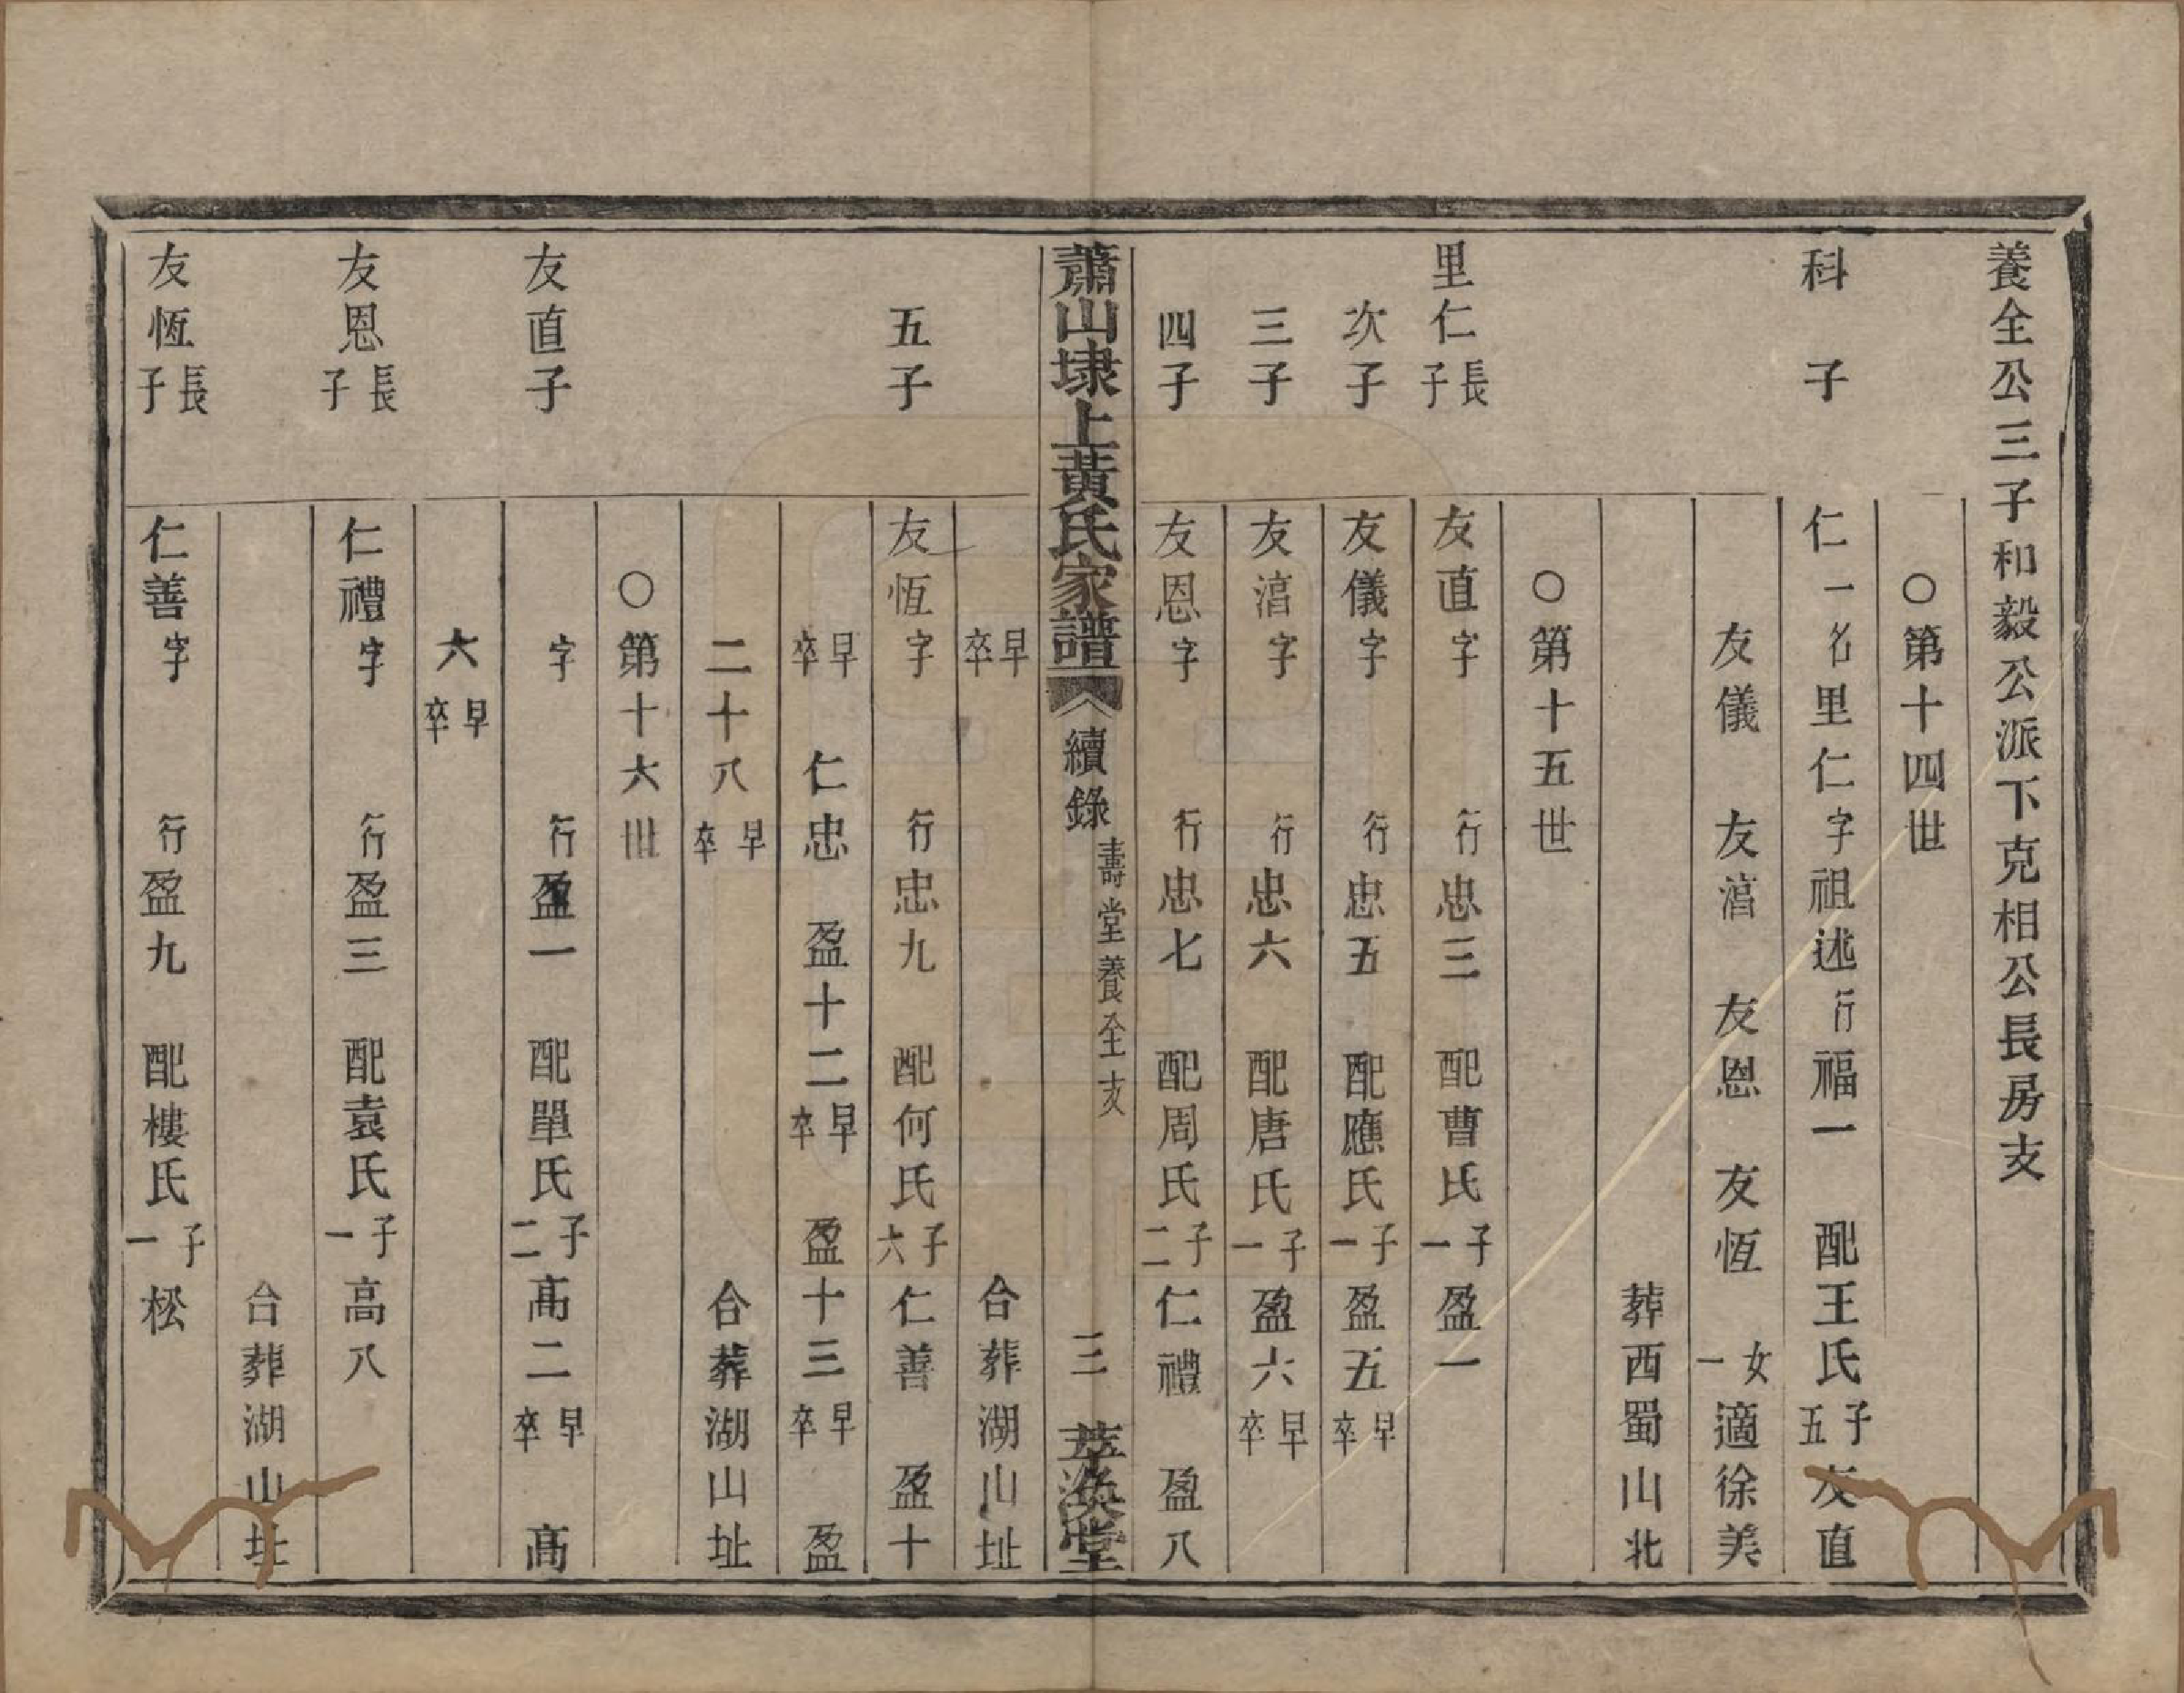 養全公三子和毅公派下克相公長房支
○第十四世
科子　仁一名里仁字祖述行福一　配王氏子五友直
友儀　友㴖　友恩　友恆　女一適徐美
葬西蜀山北
○第十五世
里仁長子　友直字　行忠三　配曹氏子一盈一
次子　友儀字　行忠五　配應氏子一盈五早卒
三子　友㴖字　行忠六　配唐氏子一盈六早卒
四子　友恩字　行忠七　配周氏子二仁禮　盈八
蕭山埭上黃氏家譜　續錄　壽堂養全支　三　萃渙堂
早卒　合葬湖山址
五子　友恆字　行忠九　配何氏子六仁善　盈十
早卒　仁忠　盈十二早卒　盈十三早卒　盈
二十八早卒　合葬湖山址
○第十六世
友直子　字　行盈一　配單氏子二高二早卒　高
六早卒
友恩長子　仁禮字　行盈三　配袁氏子一高八
合葬湖山址
友恆長子　仁善字　行盈九　配樓氏子一松